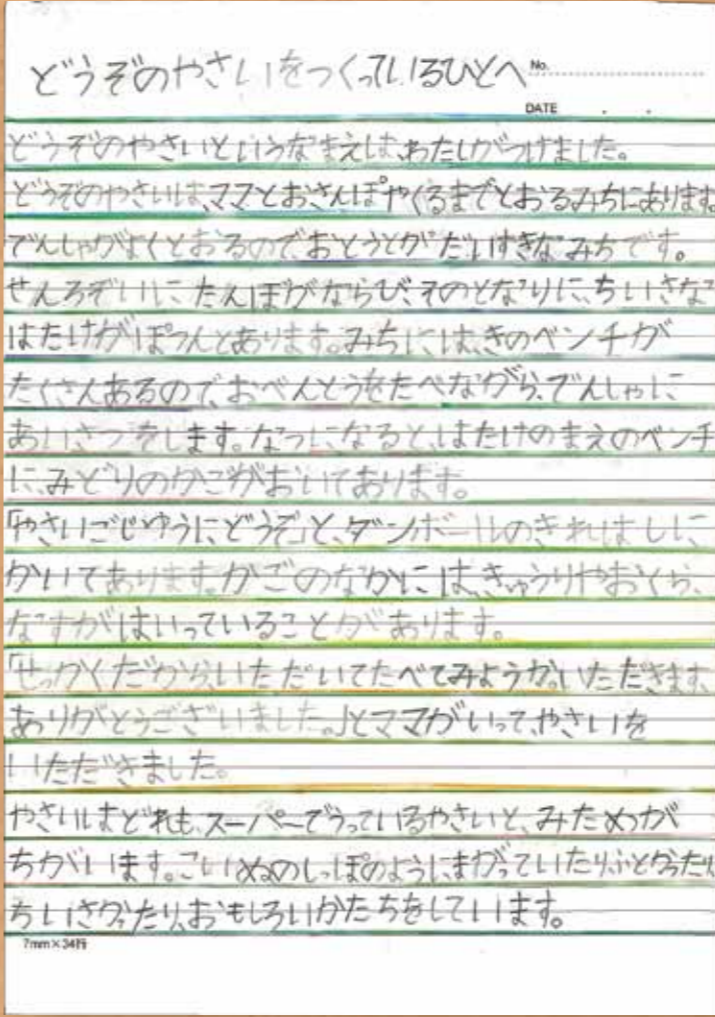 どうぞのやさいをつくっているひとへ
No.
DATE . .
どうぞのやさいというなまえは、わたしがつけました。
どうぞのやさいは、ママとおさんぽやくるまでとおるみちにあります。
でんしゃがよくとおるのでおとうとがだいすきなみちです。
せんろぞいに、たんぼがならび、そのとなりに、ちいさな
はたけがぽつんとあります。みちには、きのベンチが
たくさんあるので、おべんとうをたべながら、でんしゃに
あいさつをします。なつになると、はたけのまえのベンチ
に、みどりのかごがおいてあります。
「やさいごじゆうにどうぞ」と、ダンボールのきれはしに
かいてあります。かごのなかには、きゅうりやおくら、
なすがはいっていることがあります。
「せっかくだから、いただいてたべてみようか。いただきます、
ありがとうございました。」とママがいって、やさいを
いただきました。
やさいはどれも、スーパーでうっているやさいと、みためがが
ちがいます。こいぬのしっぽのようにまがっていたり、ふとかったり、
ちいさかったり、おもしろいかたちをしています。
7mm×34行